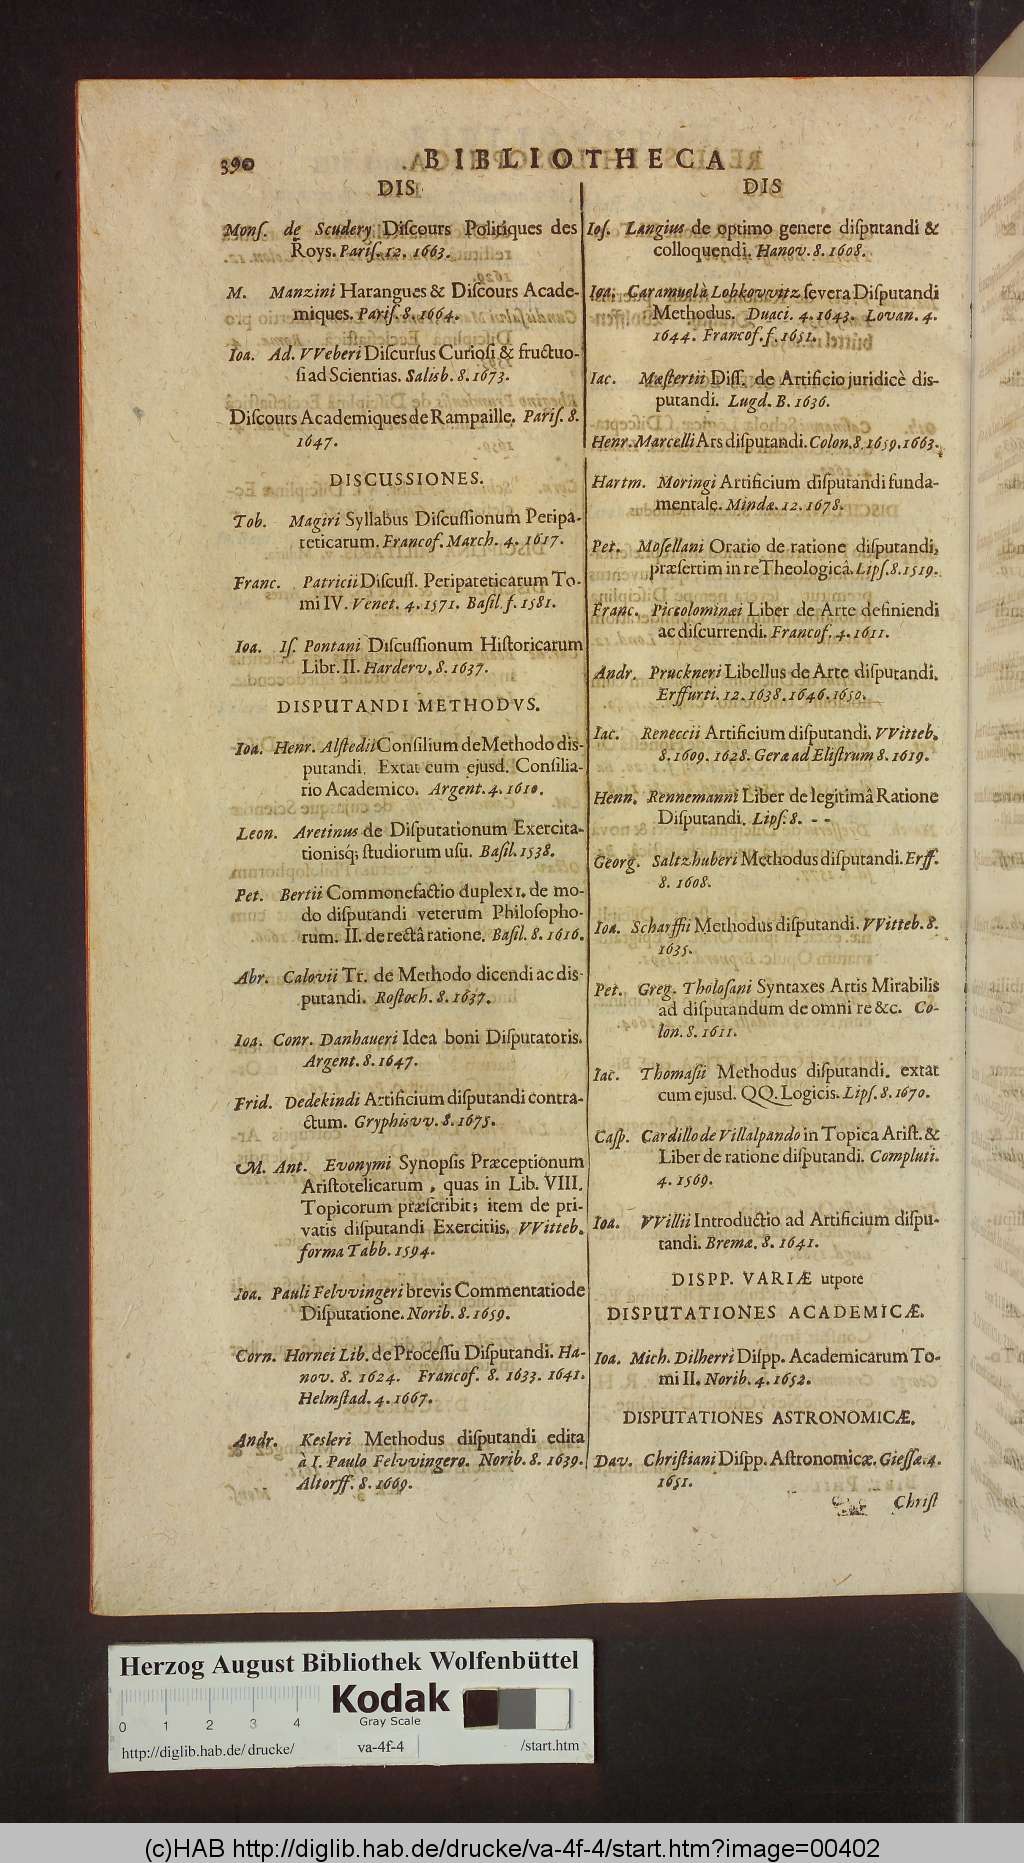 390
BIBLIOTHECA
DIS
Monſ. de Scudery Diſcours Politiques des
Roys. Pariſ. 12. 1663.
M. Manzini Harangues & Diſcours Acade-
miques. Pariſ. 8. 1664.
Ioa. Ad. VVeberi Diſcurſus Curioſi & fructuo-
ſi ad Scientias. Salisb. 8. 1673.
Diſcours Academiques de Rampaille. Pariſ. 8.
1647.
DISCUSSIONES.
Tob. Magiri Syllabus Diſcuſſionum Peripa-
teticarum. Francof. March. 4. 1617.
Franc. Patricii Diſcuſſ. Peripateticarum To-
mi IV. Venet. 4. 1571. Baſil. f. 1581.
Ioa. Iſ. Pontani Diſcuſſionum Hiſtoricarum
Libr. II. Harderv. 8. 1637.
DISPUTANDI METHODVS.
Ioa. Henr. Alſtedii Conſilium de Methodo dis-
putandi. Extat cum ejusd. Conſilia-
rio Academico. Argent. 4. 1610.
Leon. Aretinus de Diſputationum Exercita-
tionisq; ſtudiorum uſu. Baſil. 1538.
Pet. Bertii Commonefactio duplex 1. de mo-
do diſputandi veterum Philoſopho-
rum. II. de rectâ ratione. Baſil. 8. 1616.
Abr. Calovii Tr. de Methodo dicendi ac dis-
putandi. Roſtoch. 8. 1637.
Ioa. Conr. Danhaueri Idea boni Diſputatoris.
Argent. 8. 1647.
Frid. Dedekindi Artificium diſputandi contra-
ctum. Gryphisvv. 8. 1675.
M. Ant. Evonymi Synopſis Præceptionum
Ariſtotelicarum, quas in Lib. VIII.
Topicorum præſcribit; item de pri-
vatis diſputandi Exercitiis. VVitteb.
forma Tabb. 1594.
Ioa. Pauli Felvvingeri brevis Commentatio de
Diſputatione. Norib. 8. 1659.
Corn. Hornei Lib. de Proceſſu Diſputandi. Ha-
nov. 8. 1624. Francof. 8. 1633. 1641.
Helmſtad. 4. 1667.
Andr. Kesleri Methodus diſputandi edita
à I. Paulo Felvvingero. Norib. 8. 1639.
Altorff. 8. 1669.
DIS
Ioſ. Langius de optimo genere diſputandi &
colloquendi. Hanov. 8. 1608.
Ioa. Caramuel à Lobkovvitz ſevera Diſputandi
Methodus. Duaci. 4. 1643. Lovan. 4.
1644. Francof. f. 1651.
Iac. Mæſtertii Diſſ. de Artificio juridicè dis-
putandi. Lugd. B. 1636.
Henr. Marcelli Ars diſputandi. Colon. 8. 1659. 1663.
Hartm. Moringi Artificium diſputandi funda-
mentale. Mindæ. 12. 1678.
Pet. Moſellani Oratio de ratione diſputandi,
præſertim in re Theologicâ. Lipſ. 8. 1519.
Franc. Piccolominæi Liber de Arte definiendi
ac diſcurrendi. Francof. 4. 1611.
Andr. Pruckneri Libellus de Arte diſputandi.
Erffurti. 12. 1638. 1646. 1650.
Iac. Reneccii Artificium diſputandi. VVitteb.
8. 1609. 1628. Geræ ad Eliſtrum 8. 1619.
Henn. Rennemanni Liber de legitimâ Ratione
Diſputandi. Lipſ. 8. - -
Georg. Saltzhuberi Methodus diſputandi. Erff.
8. 1608.
Ioa. Scharffii Methodus diſputandi. VVitteb. 8.
1635.
Pet. Greg. Tholoſani Syntaxes Artis Mirabilis
ad diſputandum de omni re &c. Co-
lon. 8. 1611.
Iac. Thomaſii Methodus diſputandi. extat
cum ejusd. QQ. Logicis. Lipſ. 8. 1670.
Caſp. Cardillo de Villalpando in Topica Ariſt. &
Liber de ratione diſputandi. Compluti.
4. 1569.
Ioa. VVillii Introductio ad Artificium diſpu-
tandi. Bremæ. 8. 1641.
DISPP. VARIÆ utpote
DISPUTATIONES ACADEMICÆ.
Ioa. Mich. Dilherri Diſpp. Academicarum To-
mi II. Norib. 4. 1652.
DISPUTATIONES ASTRONOMICÆ.
Dav. Chriſtiani Diſpp. Aſtronomicæ. Gieſſæ. 4.
1651.
Chriſt
Herzog August Bibliothek Wolfenbüttel
Kodak
Gray Scale
0 1 2 3 4
http://diglib.hab.de/drucke/ va-4f-4 /start.htm
(c)HAB http://diglib.hab.de/drucke/va-4f-4/start.htm?image=00402